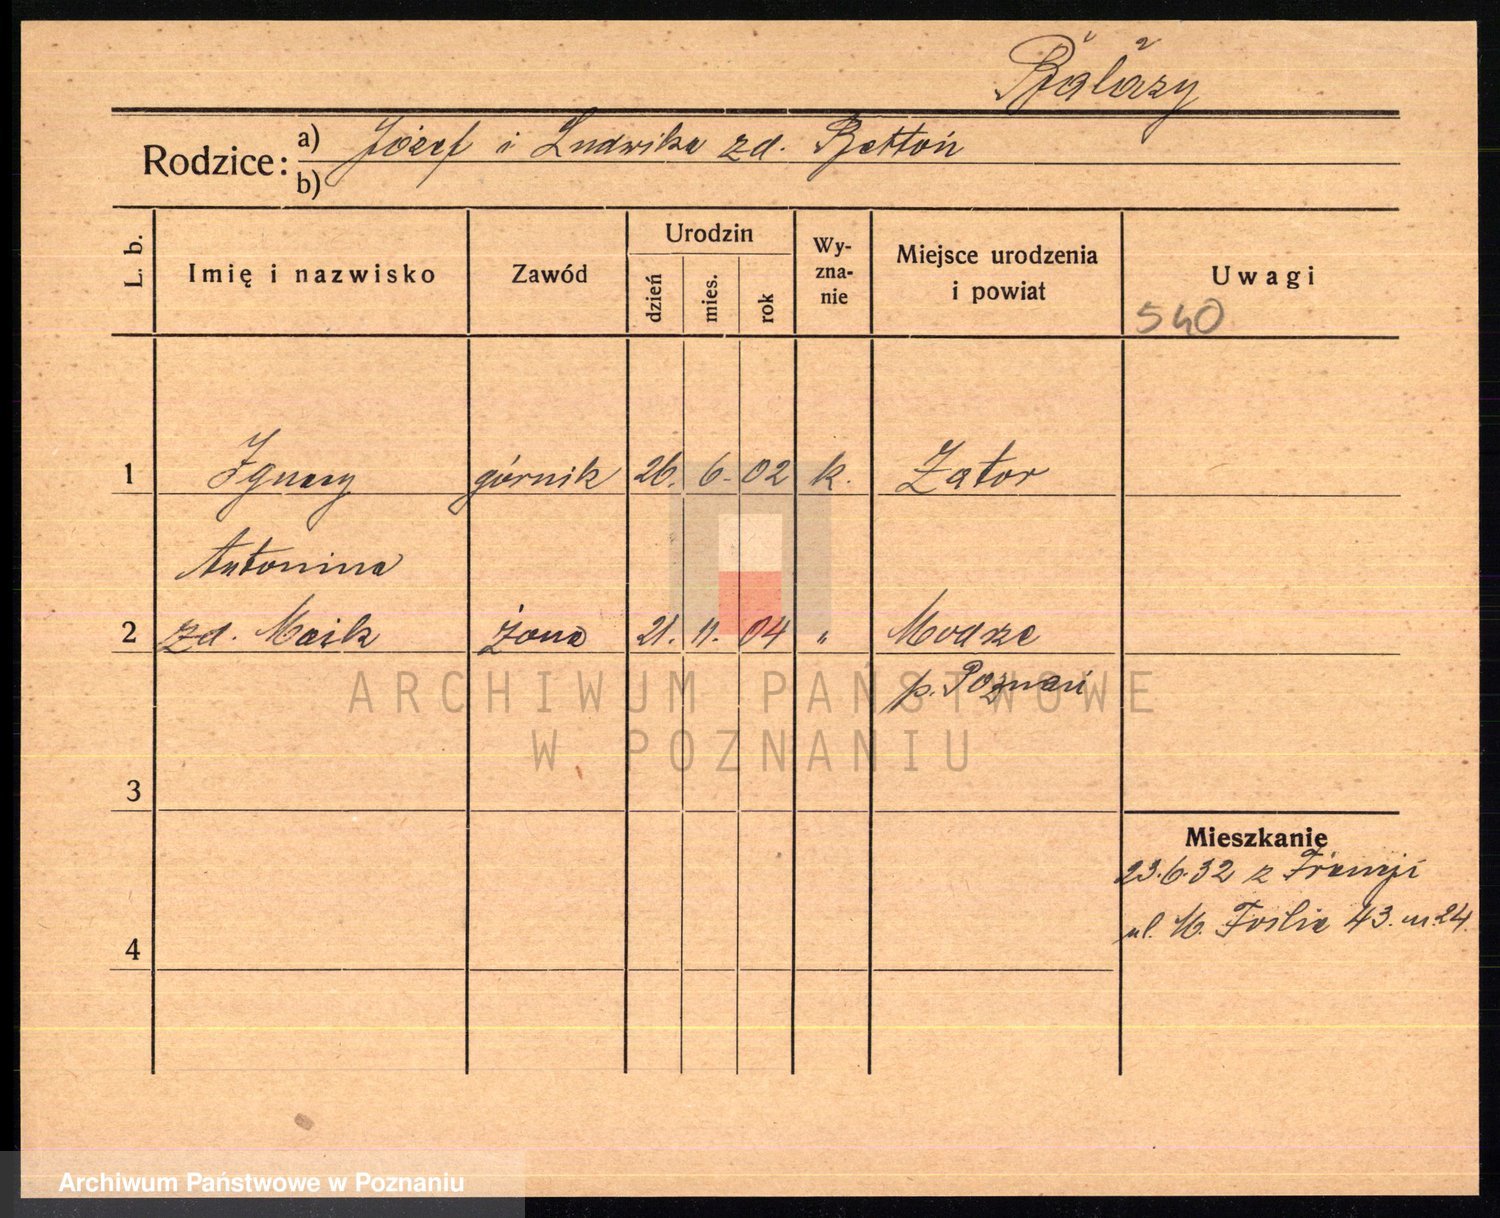 Bałazy
Rodzice:
a) Józef i Ludwika zd. Bettoń
b)
L. b.
Imię i nazwisko
Zawód
Urodzin
dzień
mies.
rok
Wy-
zna-
nie
Miejsce urodzenia
i powiat
Uwagi
540
1 Ignacy górnik 26. 6. 02 k. Zator
Antonina
2 zd. Maik żona 21. 11. 04 " Modrze
p. Poznań
3
Mieszkanie
23.6.32 z Francji
ul. M. Focha 43. m. 24.
4
ARCHIWUM PAŃSTWOWE
W POZNANIU
Archiwum Państwowe w Poznaniu